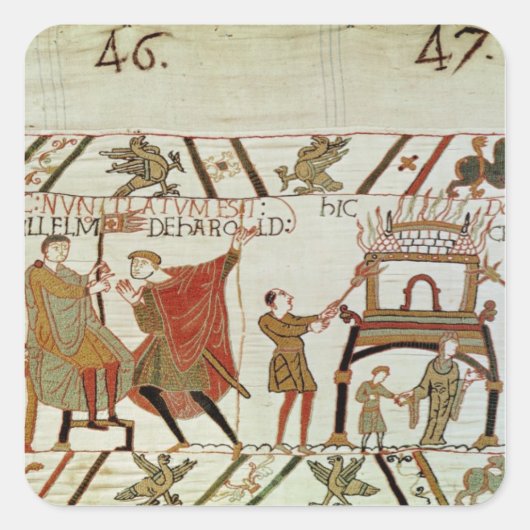 46. 47.
: NVNTIATVM EST : HIC
LLELM DE HAROLD: